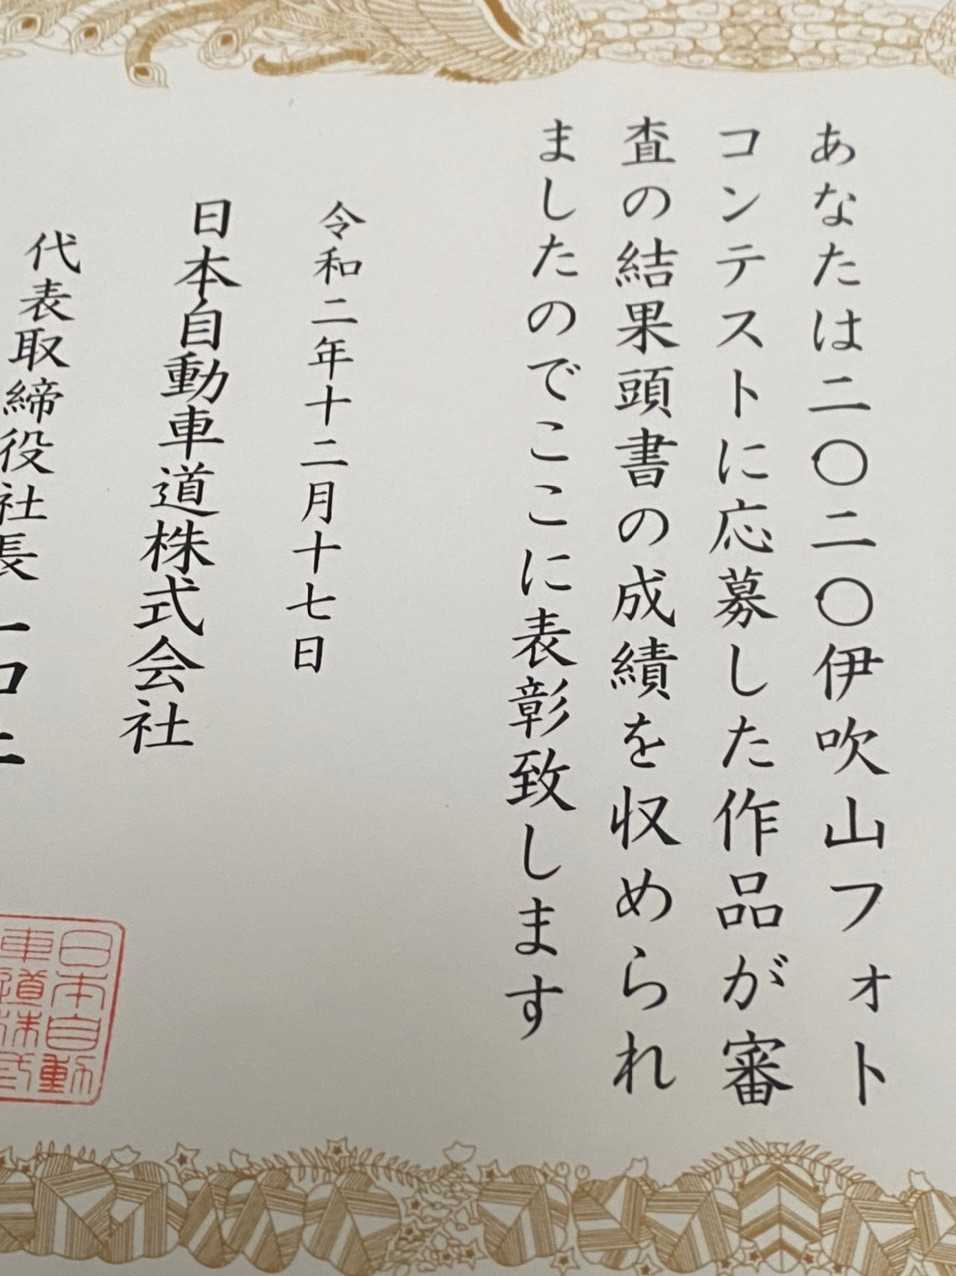 あなたは二〇二〇伊吹山フォト
コンテストに応募した作品が審
査の結果頭書の成績を収められ
ましたのでここに表彰致します
令和二年十二月十七日
日本自動車道株式会社
代表取締役社長
日本自動
車道株式